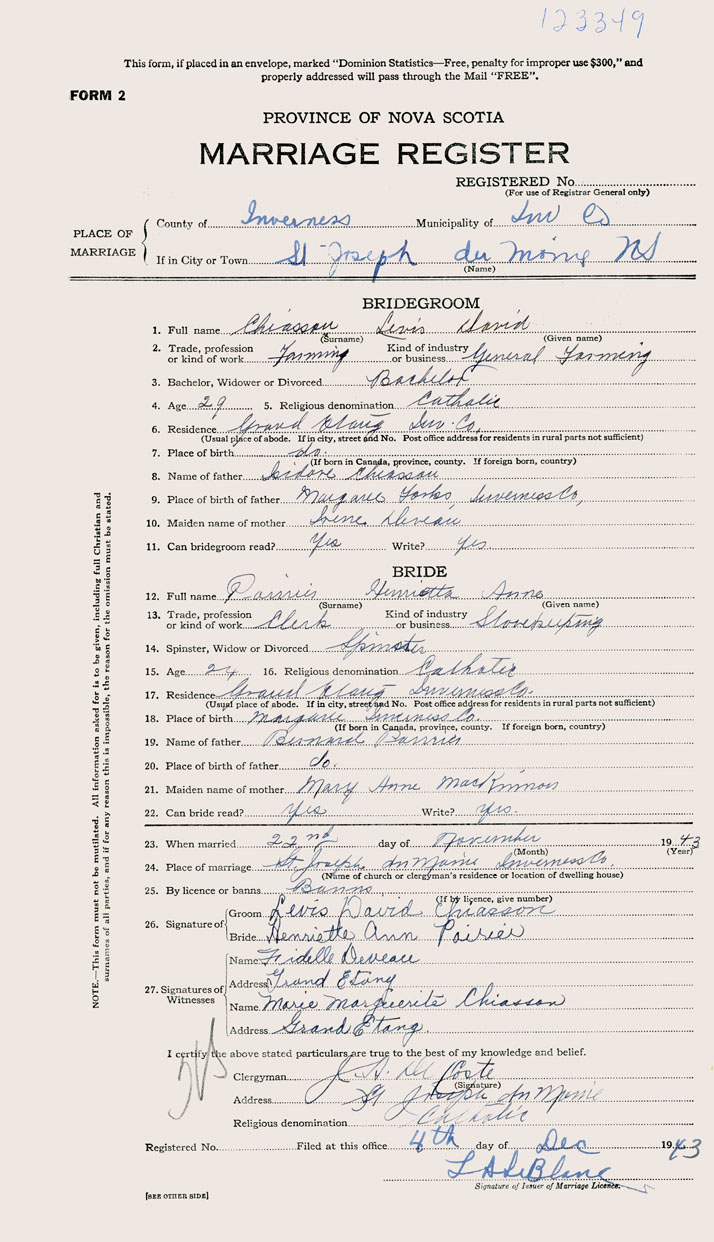 123349
This form, if placed in an envelope, marked "Dominion Statistics—Free, penalty for improper use $300," and
properly addressed will pass through the Mail "FREE".
FORM 2
PROVINCE OF NOVA SCOTIA
MARRIAGE REGISTER
REGISTERED No.
(For use of Registrar General only)
PLACE OF MARRIAGE
County of Inverness Municipality of Inv Co
If in City or Town St Joseph du Moine NS
(Name)
BRIDEGROOM
1. Full name Chiasson Levis David
(Surname) (Given name)
2. Trade, profession or kind of work Farming Kind of industry or business General Farming
3. Bachelor, Widower or Divorced Bachelor
4. Age 29 5. Religious denomination Catholic
6. Residence Grand Etang Inv. Co.
(Usual place of abode. If in city, street and No. Post office address for residents in rural parts not sufficient)
7. Place of birth do.
(If born in Canada, province, county. If foreign born, country)
8. Name of father Isidore Chiasson
9. Place of birth of father Margaree Forks, Inverness Co,
10. Maiden name of mother Irene Deveau
11. Can bridegroom read? Yes Write? yes
BRIDE
12. Full name Poirrier Henrietta Anne
(Surname) (Given name)
13. Trade, profession or kind of work Clerk Kind of industry or business Storekeeping
14. Spinster, Widow or Divorced Spinster
15. Age 24 16. Religious denomination Catholic
17. Residence Grand Etang Inverness Co.
(Usual place of abode. If in city, street and No. Post office address for residents in rural parts not sufficient)
18. Place of birth Margaree Inverness Co.
(If born in Canada, province, county. If foreign born, country)
19. Name of father Bernard Poirrier
20. Place of birth of father do.
21. Maiden name of mother Mary Anne MacKinnon
22. Can bride read? Yes Write? yes.
23. When married 22nd day of November 1943
(Month) (Year)
24. Place of marriage St. Joseph du Moine Inverness Co.
(Name of church or clergyman's residence or location of dwelling house)
25. By licence or banns Banns
(If by licence, give number)
26. Signature of
Groom Levis David Chiasson
Bride Henriette Ann Poirier
27. Signatures of Witnesses
Name Fidelle Deveau
Address Grand Etang
Name Marie Marguerite Chiasson
Address Grand Etang
I certify the above stated particulars are true to the best of my knowledge and belief.
Clergyman J. A. De Coste
(Signature)
Address St Joseph du Moine
Religious denomination Catholic
Registered No. Filed at this office 4th day of Dec 1943
L A LeBlanc
Signature of Issuer of Marriage Licence.
[SEE OTHER SIDE]
NOTE.—This form must not be mutilated. All information asked for is to be given, including full Christian and
surnames of all parties, and if for any reason this is impossible, the reason for the omission must be stated.